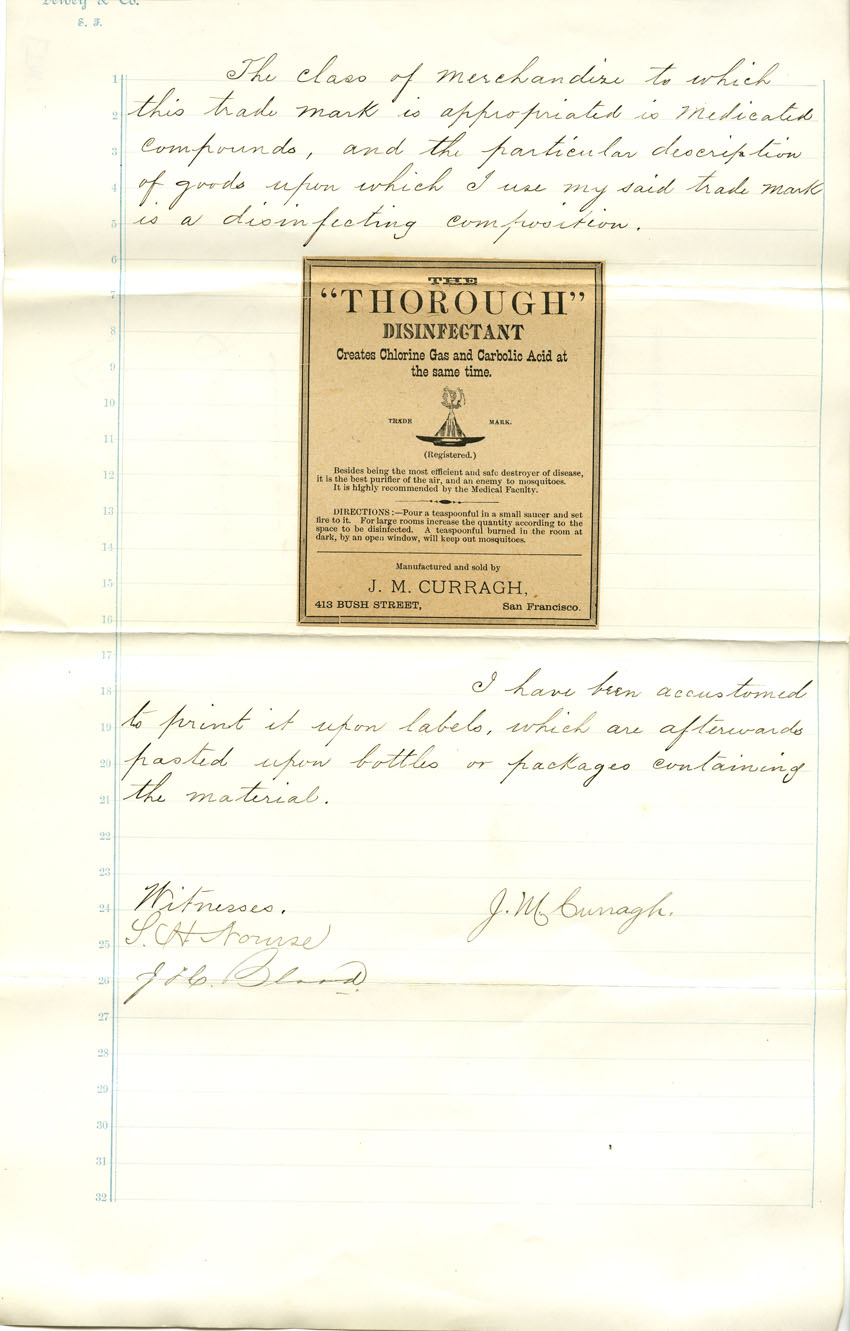 Dewey & Co.
S. F.
1 The class of merchandize to which
2 this trade mark is appropriated is Medicated
3 compounds, and the particular description
4 of goods upon which I use my said trade mark
5 is a disinfecting composition.
6
7
8
9
10
11
12
13
14
15
16
THE
"THOROUGH"
DISINFECTANT
Creates Chlorine Gas and Carbolic Acid at
the same time.
TRADE MARK.
(Registered.)
Besides being the most efficient and safe destroyer of disease,
it is the best purifier of the air, and an enemy to mosquitoes.
It is highly recommended by the Medical Faculty.
DIRECTIONS:—Pour a teaspoonful in a small saucer and set
fire to it. For large rooms increase the quantity according to the
space to be disinfected. A teaspoonful burned in the room at
dark, by an open window, will keep out mosquitoes.
Manufactured and sold by
J. M. CURRAGH,
413 BUSH STREET, San Francisco.
17
18 I have been accustomed
19 to print it upon labels, which are afterwards
20 pasted upon bottles or packages containing
21 the material.
22
23
24 Witnesses. J. M. Curragh.
25 S. H. Nourse
26 Blood.
27
28
29
30
31
32